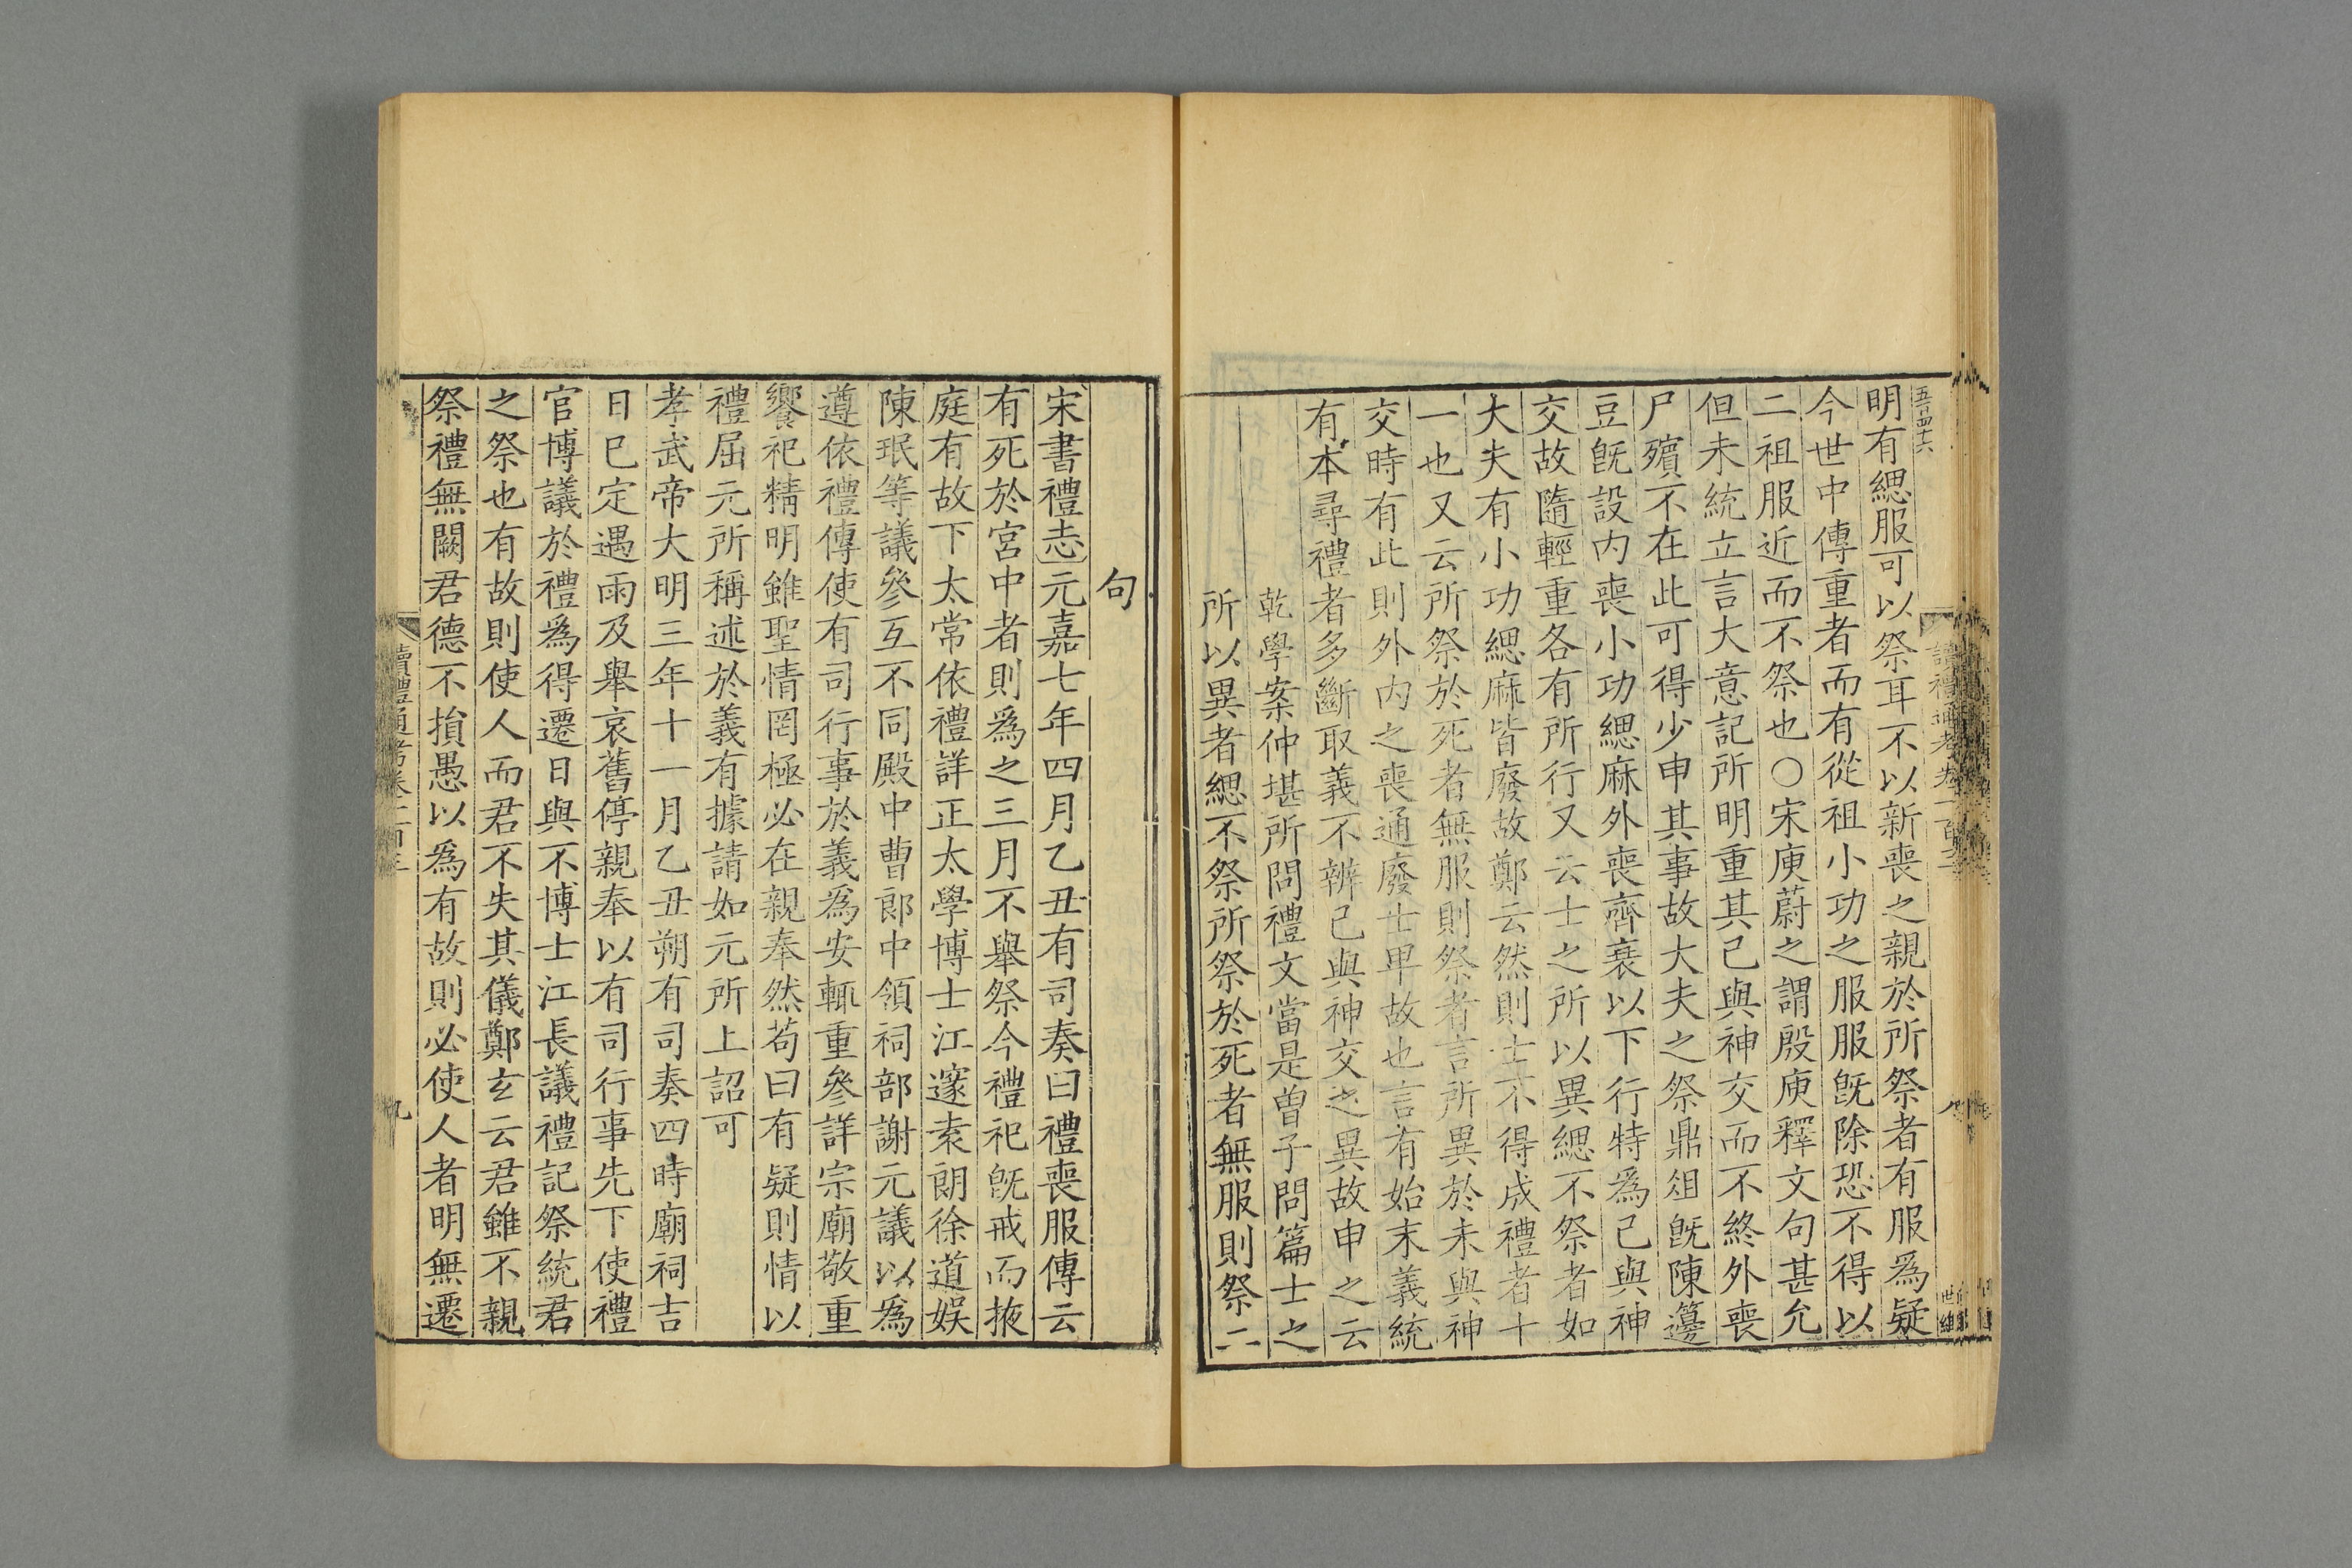 五百四十六
明有緦服可以祭耳不以新喪之親於所祭者有服爲疑
今世中傳重者而有從祖小功之服服旣除恐不得以
二祖服近而不祭也○宋庾蔚之謂殷庾釋文句甚允
但未統立言大意記所明重其已與神交而不終外喪
尸殯不在此可得少申其事故大夫之祭鼎俎旣陳籩
豆旣設內喪小功緦麻外喪齊衰以下行特爲已與神
交故隨輕重各有所行又云士之所以異緦不祭者如
大夫有小功緦麻皆廢故鄭云然則士不得成禮者十
一也又云所祭於死者無服則祭者言所異於未與神
交時有此則外內之喪通廢士卑故也言有始末義統
有本尋禮者多斷取義不辨已與神交之異故申之云
乾學案仲堪所問禮文當是曾子問篇士之
所以異者緦不祭所祭於死者無服則祭二
句
宋書禮志元嘉七年四月乙丑有司奏曰禮喪服傳云
有死於宮中者則爲之三月不舉祭今禮祀旣戒而掖
庭有故下太常依禮詳正太學博士江邃袁朗徐道娛
陳珉等議參互不同殿中曹郎中領祠部謝元議以爲
遵依禮傳使有司行事於義爲安輒重參詳宗廟敬重
饗祀精明雖聖情罔極必在親奉然苟曰有疑則情以
禮屈元所稱述於義有據請如元所上詔可
孝武帝大明三年十一月乙丑朔有司奏四時廟祠吉
日巳定遇雨及舉哀舊停親奉以有司行事先下使禮
官博議於禮爲得遷日與不博士江長議禮記祭統君
之祭也有故則使人而君不失其儀鄭玄云君雖不親
祭禮無闕君德不損愚以爲有故則必使人者明無遷
讀禮通考卷一百
九